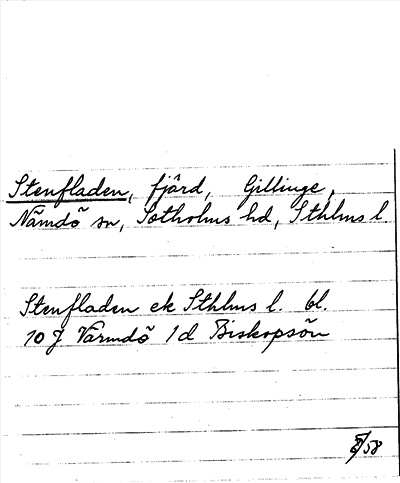 Stenfladen, fjärd, Gillinge,
Nämdö sn, Sotholms hd, Sthlms l
Stenfladen ek Sthlms l. bl.
10 J Värmdö 1d Biskopsön
/58